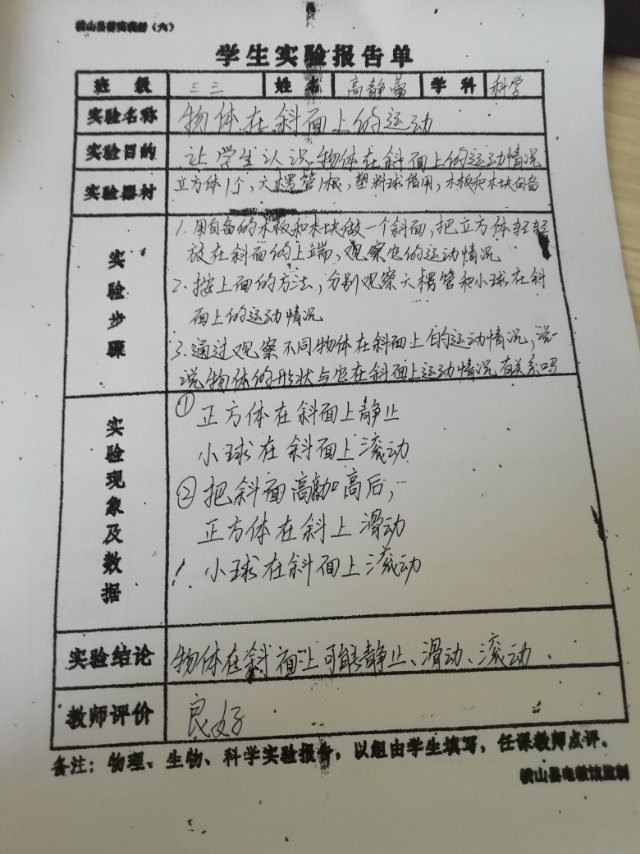 学生实验报告单
班级 三三 姓名 高静蕾 学科 科学
实验名称 物体在斜面上的运动
实验目的 让学生认识物体在斜面上的运动情况
实验器材 立方体1个,六棱管1根,塑料球借用,木板和木块自备
实验步骤
1.用自备的木板和木块做一个斜面,把立方体轻轻
放在斜面的上端,观察它的运动情况
2、按上面的方法,分别观察六楞管和小球在斜
面上的运动情况
3.通过观察不同物体在斜面上的运动情况,说
说物体的形状与它在斜面上运动情况有关系吗
实验现象及数据
①正方体在斜面上静止
小球在斜面上滚动
②把斜面高加高后,
正方体在斜上滑动
小球在斜面上滚动
实验结论 物体在斜面上可能静止、滑动、滚动.
教师评价 良好
备注:物理、生物、科学实验报告,以组由学生填写,任课教师点评。
横山县电教馆监制